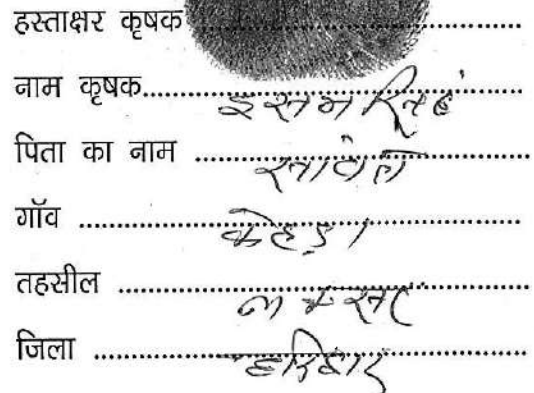 हस्ताक्षर कृषक
नाम कृषक.......... इसम सिंह
पिता का नाम ..........
गाँव ..........
तहसील .......... लक्सर
जिला .......... हरिद्वार